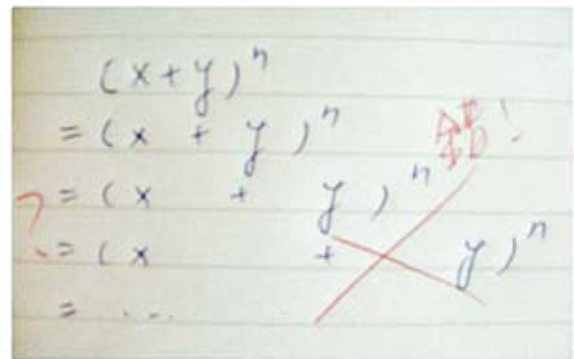 (x+y)^n
= (x + y)^n
= (x + y)^n
? = (x + y)^n
= ...